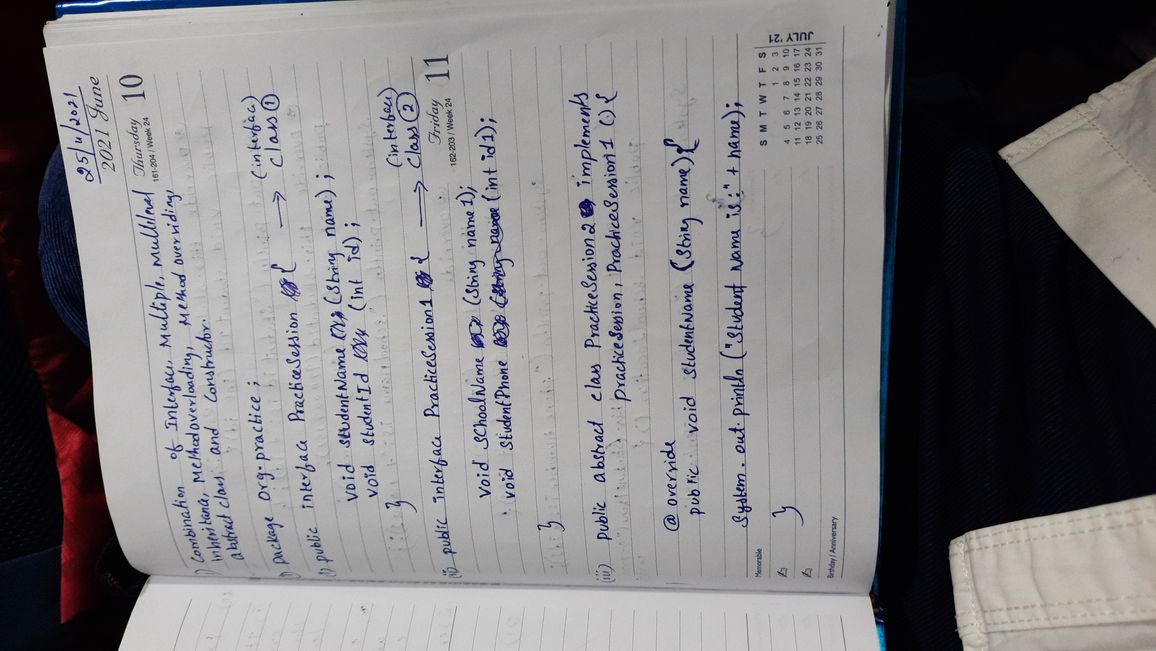 25/11/2021
2021 June
Thursday 10
161-204 / Week 24
1) Combination of Interface, Multiple, Multilevel
inheritance, Method overloading, Method overriding,
abstract class and Constructor.
package Org.practice ;
(i) public interface PracticeSession { → (interface) Class ①
void StudentName (String name) ;
void StudentId (int id) ;
}
(ii) public interface PracticeSession1 { → (interface) Class ②
Friday 11
162-203 / Week 24
void SChoolName (String name1);
void StudentPhone (int id1);
}
(iii) public abstract class PracticeSession2 implements
practiceSession, PracticeSession1 () {
@ override
public void StudentName (String name) {
System . out . println ("Student Name is:" + name);
}
Memorable
Birthday / Anniversary
S M T W T F S
1 2 3
4 5 6 7 8 9 10
11 12 13 14 15 16 17
18 19 20 21 22 23 24
25 26 27 28 29 30 31
JULY '21